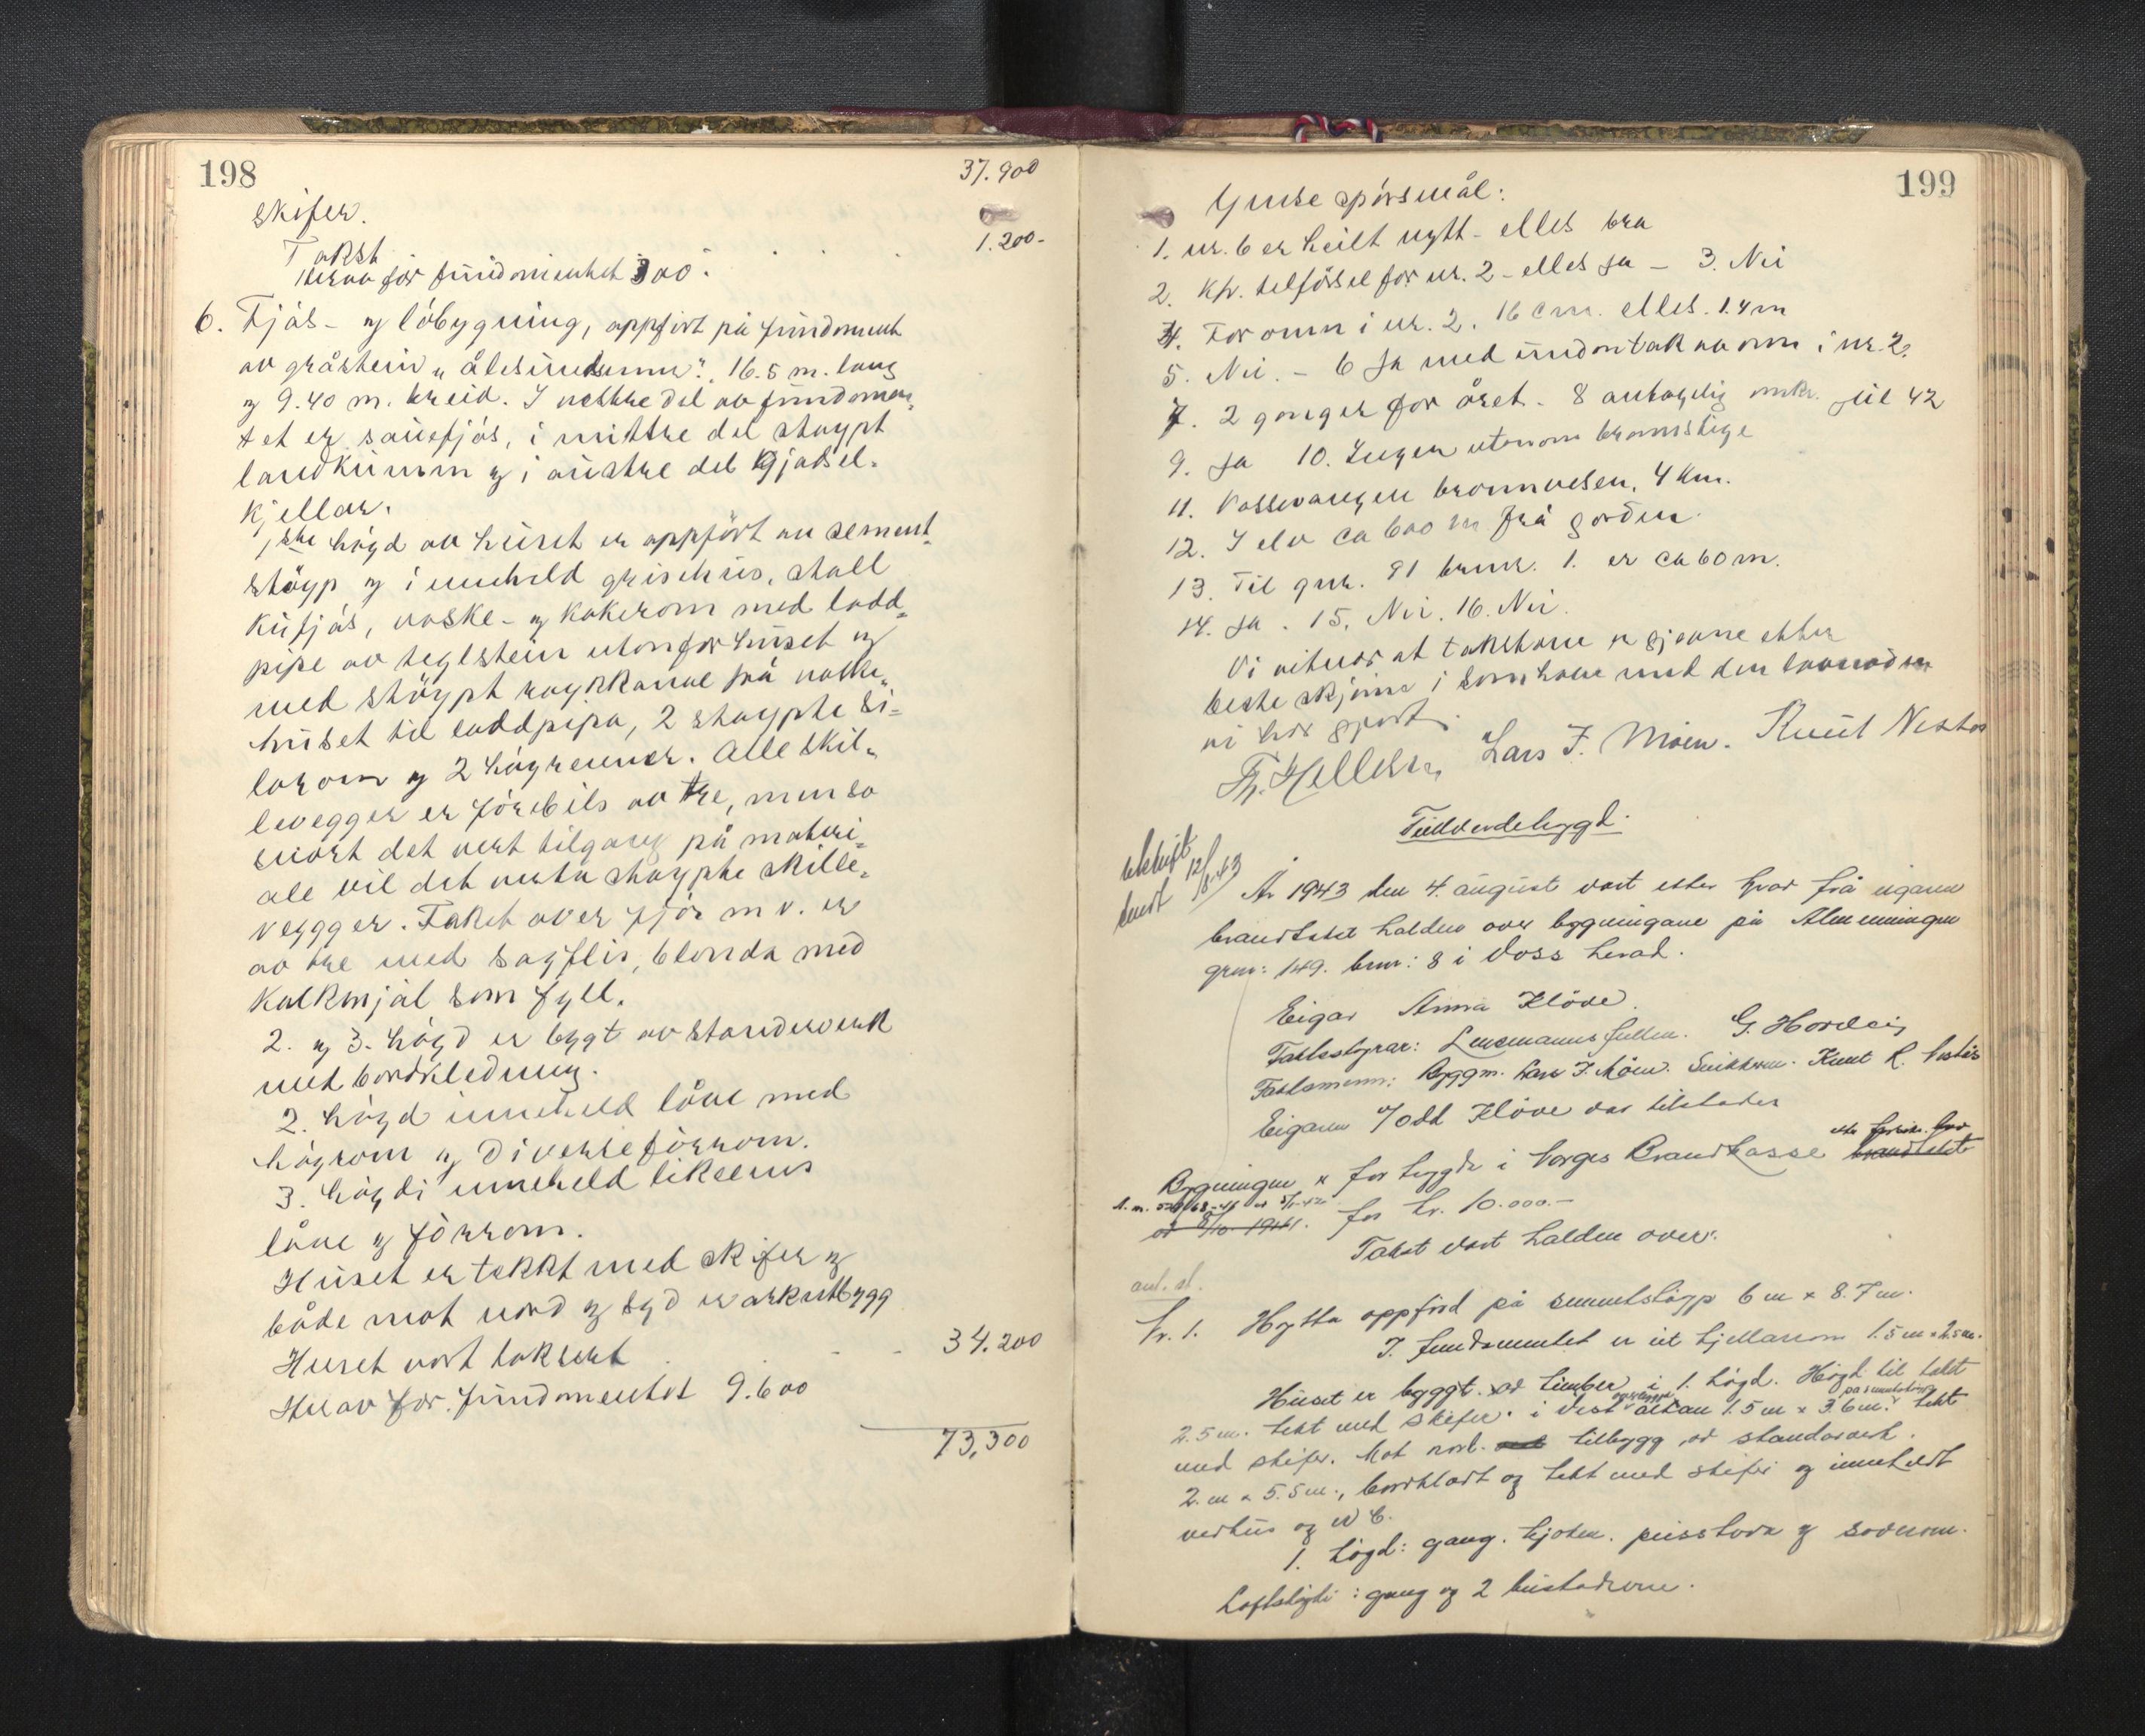 198
37.900
skifer.
Takst 1.200-
Herav for fundomentet 300.-
6. Fjøs- og løbygning, oppfört på fundoment
av gråstein "ålesundsmur". 16.5 m. lang
og 9.40 m. breid. I vestre del av fundomen-
tet er sauefjøs, i mittre del støypt
landkumm og i austre del gjødsel-
kjellar.
1ste høgd av huset er oppfört av sement-
støyp og inneheld grisehus, stall
kufjøs, vaske- og kokerom med lodd-
pipe av teglstein utonfor huset og
med støypt røykkanal frå vaske-
huset til loddpipa, 2 støypte si-
lorom og 2 høyrenner. Alle skil-
levegger er förebils av tre, men so
snart det vert tilgang på materi-
ale vil det verta støypte skille-
vegger. Taket over fjös m v. er
av tre med sagflis, blonda med
kalkmjøl som fyll.
2. og 3. høgd er bygt av standerverk
med bordkledning.
2. høgd inneheld låve med
høyrom og diverse förrom.
3. høgdi inneheld likeens
låve og förrom.
Huset er tekkt med skifer og
både mot nord og syd er arkutbygg
Huset vart taksert 34.200
Herav for fundomentet 9.600
73,300
199
Ymse spørsmål:
1. nr. 6 er heilt nytt - elles bra
2. Kfr. tilføisel for nr. 2 - elles ja - 3. Nei
4. For omn i nr. 2. 16 cm. elles. 1.4 m
5. Nei. - 6 Ja med undontak av omn i nr. 2.
7. 2 gonger for året - 8 antagelig omkr. jul 42
9. Ja 10. Ingen utenom brannstige
11. Vossevangen brannvesen, 4 km.
12. I elv ca 600 m frå gorden.
13. Til gnr. 91 brnr. 1. er ca 60 m.
14. Ja. 15. Nei. 16. Nei.
Vi vitnar at takstane er gjevne etter
beste skjönn i samhøve med den lovnaden
vi har gjort.
Th. Hellesen, Lars J. Møen. Knut Nestås
Fullverdebygd.
utskrift
sendt 12/8-43
År 1943 den 4. august vart etter krav frå eigaren
brandtakst halden over bygningane på Almenningen
grnr: 149. brnr: 8 i Voss herad.
Eigar Anna Klöve.
Takststyrar: Lensmannsfullm. G. Hordvig
Takstmenn: Byggm. Lars J. Möen. Snikkarm. Knut R. Nestås
Eigaren v/Odd Klöve var tilstades
Bygningen er for trygda i Norges Brandkasse brandtakst
av 8/10-1941. for kr. 10.000.-
Takst vart halden over:
ant. st.
Nr. 1. Hytta oppförd på sementstøyp 6 m x 8.7 m.
I fundamentet er eit kjellarrom 1.5 m x 2.5 m.
Huset er byggt av timber i 1. högd. Högd til taket
2.5 m. tekt med skifer. i vest altan 1.5 m x 3.6 m. på sementstøyp tekt
med skifer. Mot nord tilbygg av standarverk.
2. m x 5.5 m., bordklædt og tekt med skifer og inneheldt
vedhus og W C.
1. högd: gang. kjöken. peisstova og soverom.
Loftshögdi: gang og 2 bustadrom.